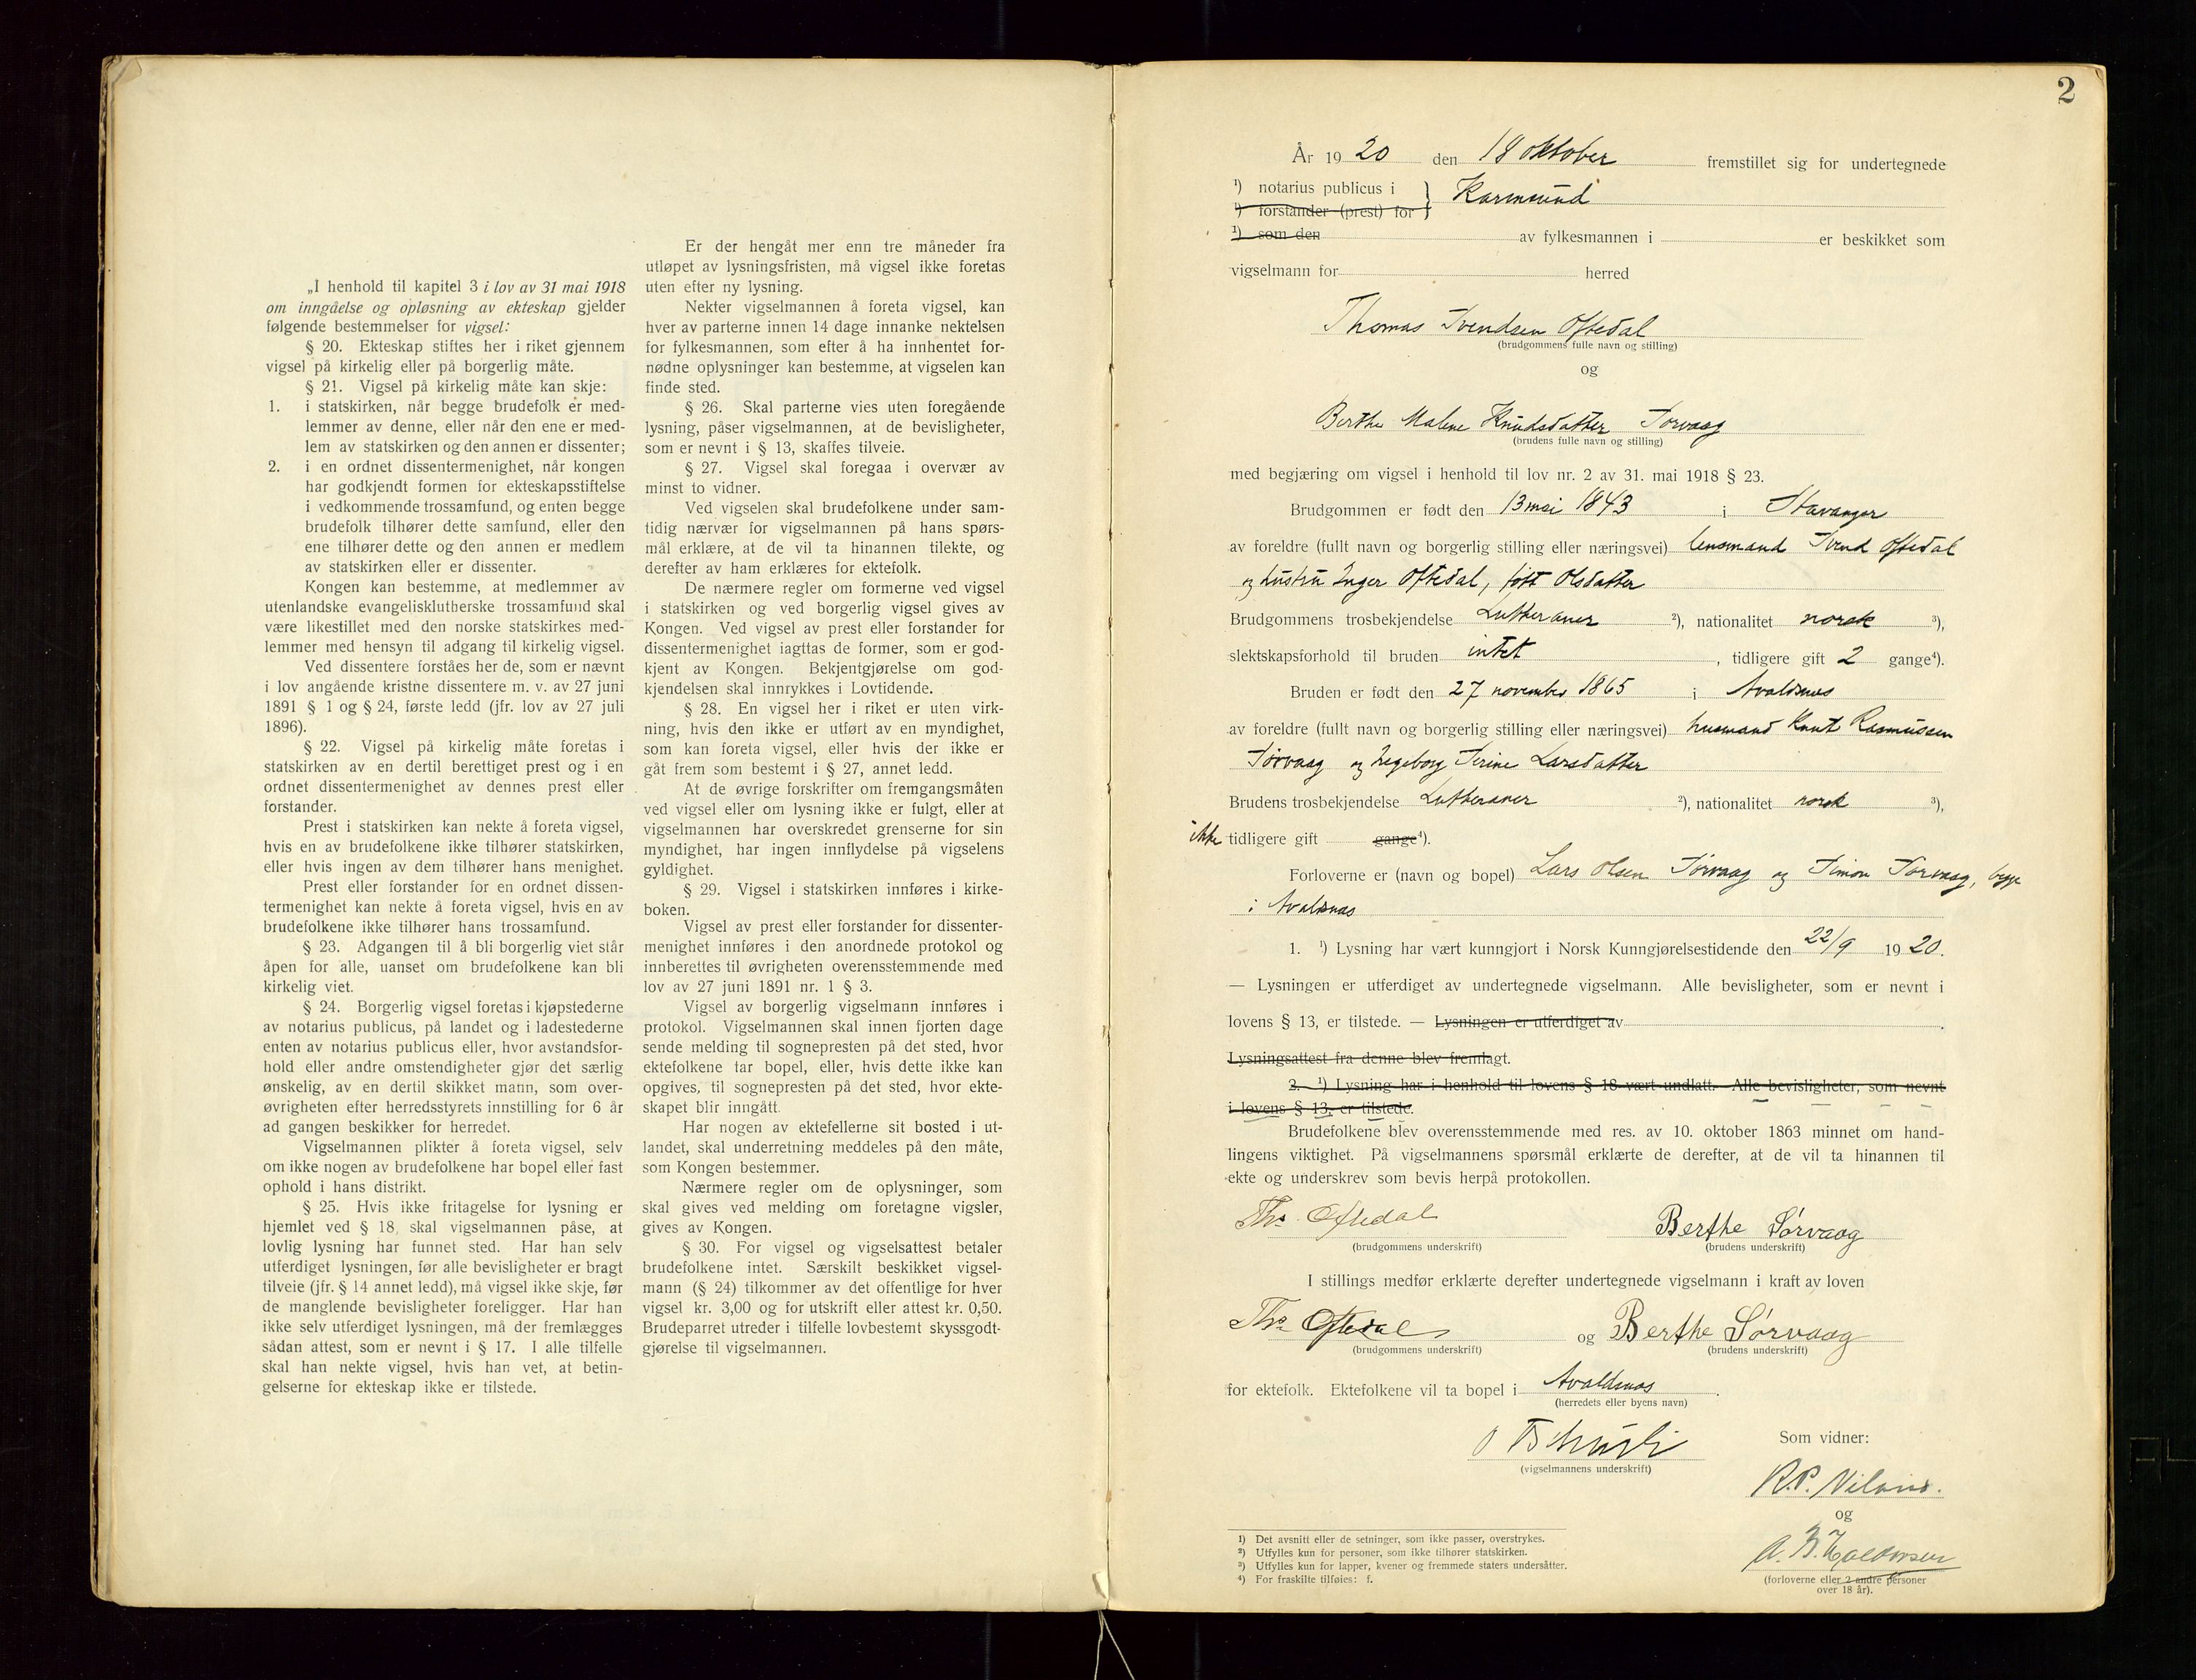 „I henhold til kapitel 3 i lov av 31 mai 1918
om inngåelse og opløsning av ekteskap gjelder
følgende bestemmelser for vigsel:
§ 20. Ekteskap stiftes her i riket gjennem
vigsel på kirkelig eller på borgerlig måte.
§ 21. Vigsel på kirkelig måte kan skje:
1. i statskirken, når begge brudefolk er med-
lemmer av denne, eller når den ene er med-
lem av statskirken og den annen er dissenter;
2. i en ordnet dissentermenighet, når kongen
har godkjendt formen for ekteskapsstiftelse
i vedkommende trossamfund, og enten begge
brudefolk tilhører dette samfund, eller den
ene tilhører dette og den annen er medlem
av statskirken eller er dissenter.
Kongen kan bestemme, at medlemmer av
utenlandske evangelisklutherske trossamfund skal
være likestillet med den norske statskirkes med-
lemmer med hensyn til adgang til kirkelig vigsel.
Ved dissentere forståes her de, som er nævnt
i lov angående kristne dissentere m. v. av 27 juni
1891 § 1 og § 24, første ledd (jfr. lov av 27 juli
1896).
§ 22. Vigsel på kirkelig måte foretas i
statskirken av en dertil berettiget prest og i en
ordnet dissentermenighet av dennes prest eller
forstander.
Prest i statskirken kan nekte å foreta vigsel,
hvis en av brudefolkene ikke tilhører statskirken,
eller hvis ingen av dem tilhører hans menighet.
Prest eller forstander for en ordnet dissen-
termenighet kan nekte å foreta vigsel, hvis en av
brudefolkene ikke tilhører hans trossamfund.
§ 23. Adgangen til å bli borgerlig viet står
åpen for alle, uanset om brudefolkene kan bli
kirkelig viet.
§ 24. Borgerlig vigsel foretas i kjøpstederne
av notarius publicus, på landet og i ladestederne
enten av notarius publicus eller, hvor avstandsfor-
hold eller andre omstendigheter gjør det særlig
ønskelig, av en dertil skikket mann, som over-
øvrigheten efter herredsstyrets innstilling for 6 år
ad gangen beskikker for herredet.
Vigselmannen plikter å foreta vigsel, selv
om ikke nogen av brudefolkene har bopel eller fast
ophold i hans distrikt.
§ 25. Hvis ikke fritagelse for lysning er
hjemlet ved § 18, skal vigselmannen påse, at
lovlig lysning har funnet sted. Har han selv
utferdiget lysningen, før alle bevisligheter er bragt
tilveie (jfr. § 14 annet ledd), må vigsel ikke skje, før
de manglende bevisligheter foreligger. Har han
ikke selv utferdiget lysningen, må der fremlægges
sådan attest, som er nevnt i § 17. I alle tilfelle
skal han nekte vigsel, hvis han vet, at betin-
gelserne for ekteskap ikke er tilstede.
Er der hengåt mer enn tre måneder fra
utløpet av lysningsfristen, må vigsel ikke foretas
uten efter ny lysning.
Nekter vigselmannen å foreta vigsel, kan
hver av parterne innen 14 dage innanke nektelsen
for fylkesmannen, som efter å ha innhentet for-
nødne oplysninger kan bestemme, at vigselen kan
finde sted.
§ 26. Skal parterne vies uten foregående
lysning, påser vigselmannen, at de bevisligheter,
som er nevnt i § 13, skaffes tilveie.
§ 27. Vigsel skal foregaa i overvær av
minst to vidner.
Ved vigselen skal brudefolkene under sam-
tidig nærvær for vigselmannen på hans spørs-
mål erklære, at de vil ta hinannen tilekte, og
derefter av ham erklæres for ektefolk.
De nærmere regler om formerne ved vigsel
i statskirken og ved borgerlig vigsel gives av
Kongen. Ved vigsel av prest eller forstander for
dissentermenighet iagttas de former, som er god-
kjent av Kongen. Bekjentgjørelse om god-
kjendelsen skal innrykkes i Lovtidende.
§ 28. En vigsel her i riket er uten virk-
ning, hvis den ikke er utført av en myndighet,
som kan foreta vigsel, eller hvis der ikke er
gåt frem som bestemt i § 27, annet ledd.
At de øvrige forskrifter om fremgangsmåten
ved vigsel eller om lysning ikke er fulgt, eller at
vigselmannen har overskredet grenserne for sin
myndighet, har ingen innflydelse på vigselens
gyldighet.
§ 29. Vigsel i statskirken innføres i kirke-
boken.
Vigsel av prest eller forstander for dissenter-
menighet innføres i den anordnede protokol og
innberettes til øvrigheten overensstemmende med
lov av 27 juni 1891 nr. 1 § 3.
Vigsel av borgerlig vigselmann innføres i
protokol. Vigselmannen skal innen fjorten dage
sende melding til sognepresten på det sted, hvor
ektefolkene tar bopel, eller, hvis dette ikke kan
opgives, til sognepresten på det sted, hvor ekte-
skapet blir inngått.
Har nogen av ektefellerne sit bosted i ut-
landet, skal underretning meddeles på den måte,
som Kongen bestemmer.
Nærmere regler om de oplysninger, som
skal gives ved melding om foretagne vigsler,
gives av Kongen.
§ 30. For vigsel og vigselsattest betaler
brudefolkene intet. Særskilt beskikket vigsel-
mann (§ 24) tilkommer av det offentlige for hver
vigsel kr. 3,00 og for utskrift eller attest kr. 0,50.
Brudeparret utreder i tilfelle lovbestemt skyssgodt-
gjørelse til vigselmannen.
2
År 1920 den 18 oktober fremstillet sig for undertegnede
1) notarius publicus i } Karmsund
1) forstander (prest) for
1) som den av fylkesmannen i er beskikket som
vigselmann for herred
Thomas Svendsen Oftedal
(brudgommens fulle navn og stilling)
og
Berthe Malene Knudsdatter Sørvaag
(brudens fulle navn og stilling)
med begjæring om vigsel i henhold til lov nr. 2 av 31. mai 1918 § 23.
Brudgommen er født den 13 mai 1843 i Stavanger
av foreldre (fullt navn og borgerlig stilling eller næringsvei) lensmand Svend Oftedal
og hustru Inger Oftedal, født Olsdatter
Brudgommens trosbekjendelse Lutheraner 2), nationalitet norsk 3),
slektskapsforhold til bruden intet, tidligere gift 2 gange4).
Bruden er født den 27 november 1865 i Avaldsnes
av foreldre (fullt navn og borgerlig stilling eller næringsvei) husmand Knut Rasmussen
Sørvaag og Ingeborg Serine Larsdatter
Brudens trosbekjendelse Lutheraner 2), nationalitet norsk 3),
ikke tidligere gift gange4).
Forloverne er (navn og bopel) Lars Olsen Sørvaag og Simon Sørvaag, begge
i Avaldsnes
1. 1) Lysning har vært kunngjort i Norsk Kunngjørelsestidende den 22/9 1920.
— Lysningen er utferdiget av undertegnede vigselmann. Alle bevisligheter, som er nevnt i
lovens § 13, er tilstede. — Lysningen er utferdiget av
Lysningsattest fra denne blev fremlagt.
2. 1) Lysning har i henhold til lovens § 18 vært undlatt. Alle bevisligheter, som nevnt
i lovens § 13, er tilstede.
Brudefolkene blev overensstemmende med res. av 10. oktober 1863 minnet om hand-
lingens viktighet. På vigselmannens spørsmål erklærte de derefter, at de vil ta hinannen til
ekte og underskrev som bevis herpå protokollen.
Ths. Oftedal Berthe Sørvaag
(brudgommens underskrift) (brudens underskrift)
I stillings medfør erklærte derefter undertegnede vigselmann i kraft av loven
Ths. Oftedal og Berthe Sørvaag
(brudgommens underskrift) (brudens underskrift)
for ektefolk. Ektefolkene vil ta bopel i Avaldsnes.
(herredets eller byens navn)
Som vidner:
(vigselmannens underskrift)
R.P.
og
A. B.
(forloverne eller 2 andre personer
over 18 år).
1) Det avsnitt eller de setninger, som ikke passer, overstrykes.
2) Utfylles kun for personer, som ikke tilhører statskirken.
3) Utfylles kun for lapper, kvener og fremmede staters undersåtter.
4) For fraskilte tilføies: f.